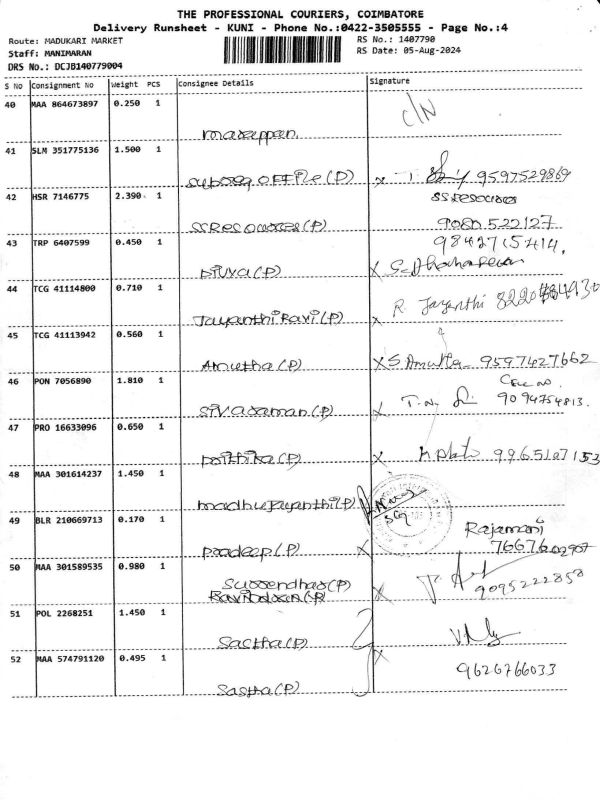 THE PROFESSIONAL COURIERS, COIMBATORE
Delivery Runsheet - KUNI - Phone No.:0422-3505555 - Page No.:4
Route: MADUKARI MARKET
RS No.: 1407790
Staff: MANIMARAN
RS Date: 05-Aug-2024
DRS No.: DCJB140779004
S No Consignment No Weight PCS Consignee Details Signature
40 MAA 864673897 0.250 1
C/N
41 SLM 351775136 1.500 1
x T. 9597529869
SSResources
42 HSR 7146775 2.390 1
SSResources(P) 9080522127
9842715414.
43 TRP 6407599 0.450 1
Divya(P) x
44 TCG 41114800 0.710 1
R. Jayanthi
Jayanthi Ravi(P) x
45 TCG 41113942 0.560 1
Amutha(P) x S. Amutha 9597427662
46 PON 7056890 1.810 1
Cell no.
Sivaraman(P) 9094754813.
47 PRO 16633096 0.650 1
x 9965107153
48 MAA 301614237 1.450 1
madhujayanthi(P)
49 BLR 210669713 0.170 1
Rajamani
Pradeep(P) x
50 MAA 301589535 0.980 1
Surrendhar(P) x
51 POL 2268251 1.450 1
Sastha(P)
52 MAA 574791120 0.495 1
x
9626766033
Sastha(P)